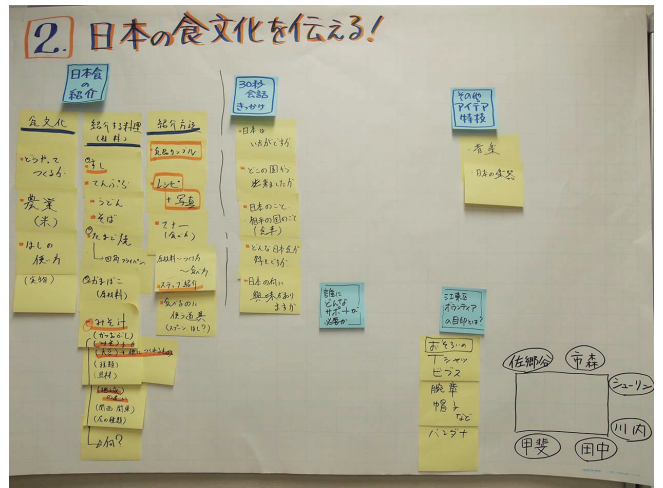 2. 日本の食文化を伝える!
日本食
の
紹介
食文化
どうやって
つくるか
農業
(米)
はしの
使い方
紹介する料理
(材料)
すし
てんぷら
うどん
そば
たまご焼
四角フライパン
かまぼこ
(原材料)
みそ汁
(かつおぶし)
(種類)
(具材)
(関西 関東)
何?
紹介方法
食品サンプル
レシピ
+写真
マナー
(食べ方)
原材料〜つくり方
〜食べ方
ステップ紹介
食べるのに
使う道具
(スプーン はし?)
30秒
会話
きっかけ
日本は
いかがですか
どこの国から
来ましたか
日本のこと
相手の国のこと
どんな日本食が
好きですか
日本の何に
興味あり
ますか
誰に
どんな
サポートが
必要か
その他
アイデア
特技
音楽
日本の楽器
江東区
ボランティア
の目印とは?
おそろいの
Tシャツ
ビブス
腕章
帽子
など
バンダナ
佐郷谷
市森
シューリン
川内
田中
甲斐